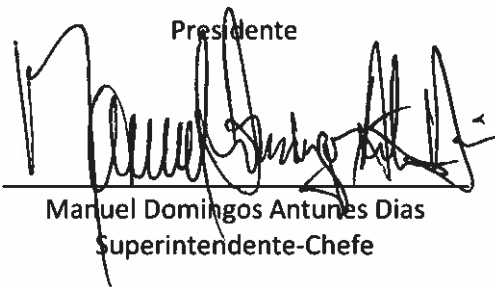 Presidente
Manuel Domingos Antunes Dias
Superintendente-Chefe